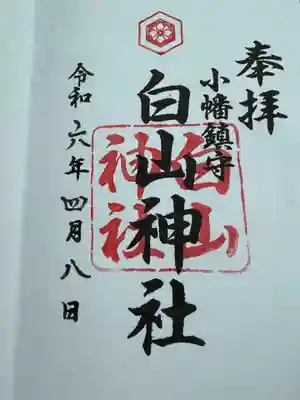 奉拝
小幡鎮守
白山神社
白山
神社
令和六年四月八日